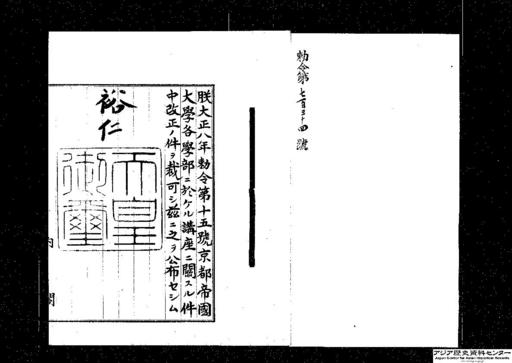 勅令第七百三十四號
朕大正八年勅令第十五號京都帝國
大學各學部ニ於ケル講座ニ關スル件
中改正ノ件ヲ裁可シ茲ニ之ヲ公布セシム
裕仁
天皇
御璽
内閣
アジア歴史資料センター
Japan Center for Asian Historical Records